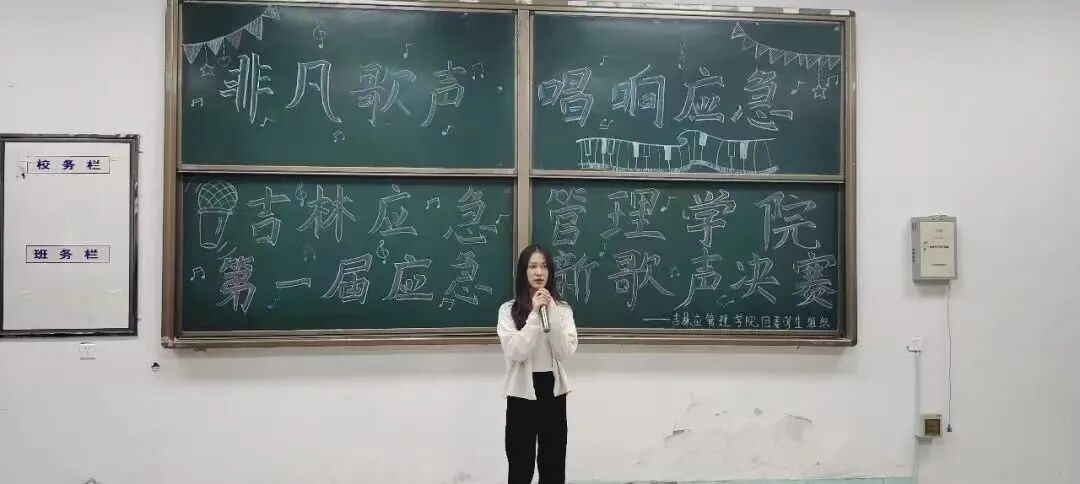 非凡歌声 唱响应急
吉林应急管理学院
第一届应急新歌声决赛
——吉林应急管理学院团委学生组织
校务栏
班务栏